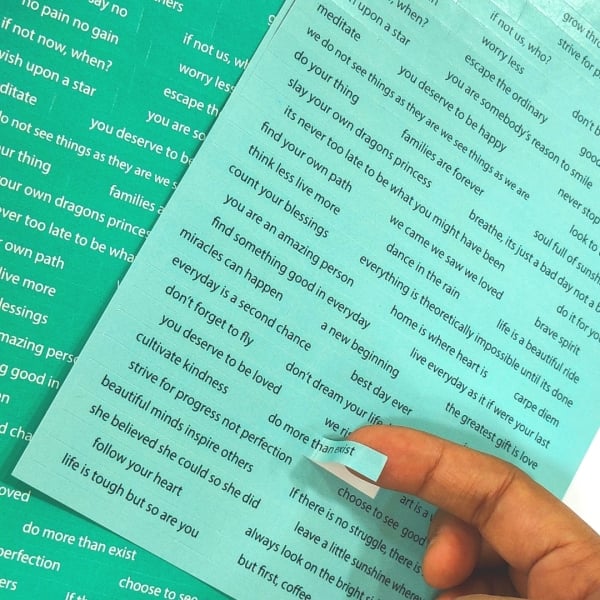 say no
no pain no gain
if not now, when?
if not us, who
wish upon a star
worry less
escape the
you are so
you deserve to be
families a
your own dragons princess
never too late to be what
own path
live more
blessings
amazing person
good in
loved
do more than exist
perfection
choose to see
when?
if not us, who?
grow
upon a star
worry less
strive for
meditate
escape the ordinary
we do not see things as they are we see things as we are
you are somebody's reason to smile
do your thing
you deserve to be happy
don't
slay your own dragons princess
families are forever
good
its never too late to be what you might have been
never stop
find your own path
breathe, its just a bad day not a
look to
think less live more
we came we saw we loved
soul full of
count your blessings
dance in the rain
do it for
you are an amazing person
everything is theoretically impossible until its done
brave spirit
find something good in everyday
home is where heart is
life is a beautiful ride
miracles can happen
a new beginning
live everyday as it if were your last
carpe diem
everyday is a second chance
best day ever
the greatest gift is love
don't forget to fly
don't dream your life
you deserve to be loved
we
cultivate kindness
do more than exist
strive for progress not perfection
choose to see good
art is a
beautiful minds inspire others
If there is no struggle, there is
she believed she could so she did
leave a little sunshine
follow your heart
always look on the bright
life is tough but so are you
but first, coffee